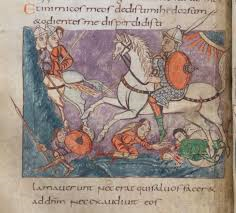 Et inimicos meos dedisti mihi dorsum
& odientes me disperdidisti
lamauerunt nec erat qui saluos facer&
ad dnm nec exaudiuit eos